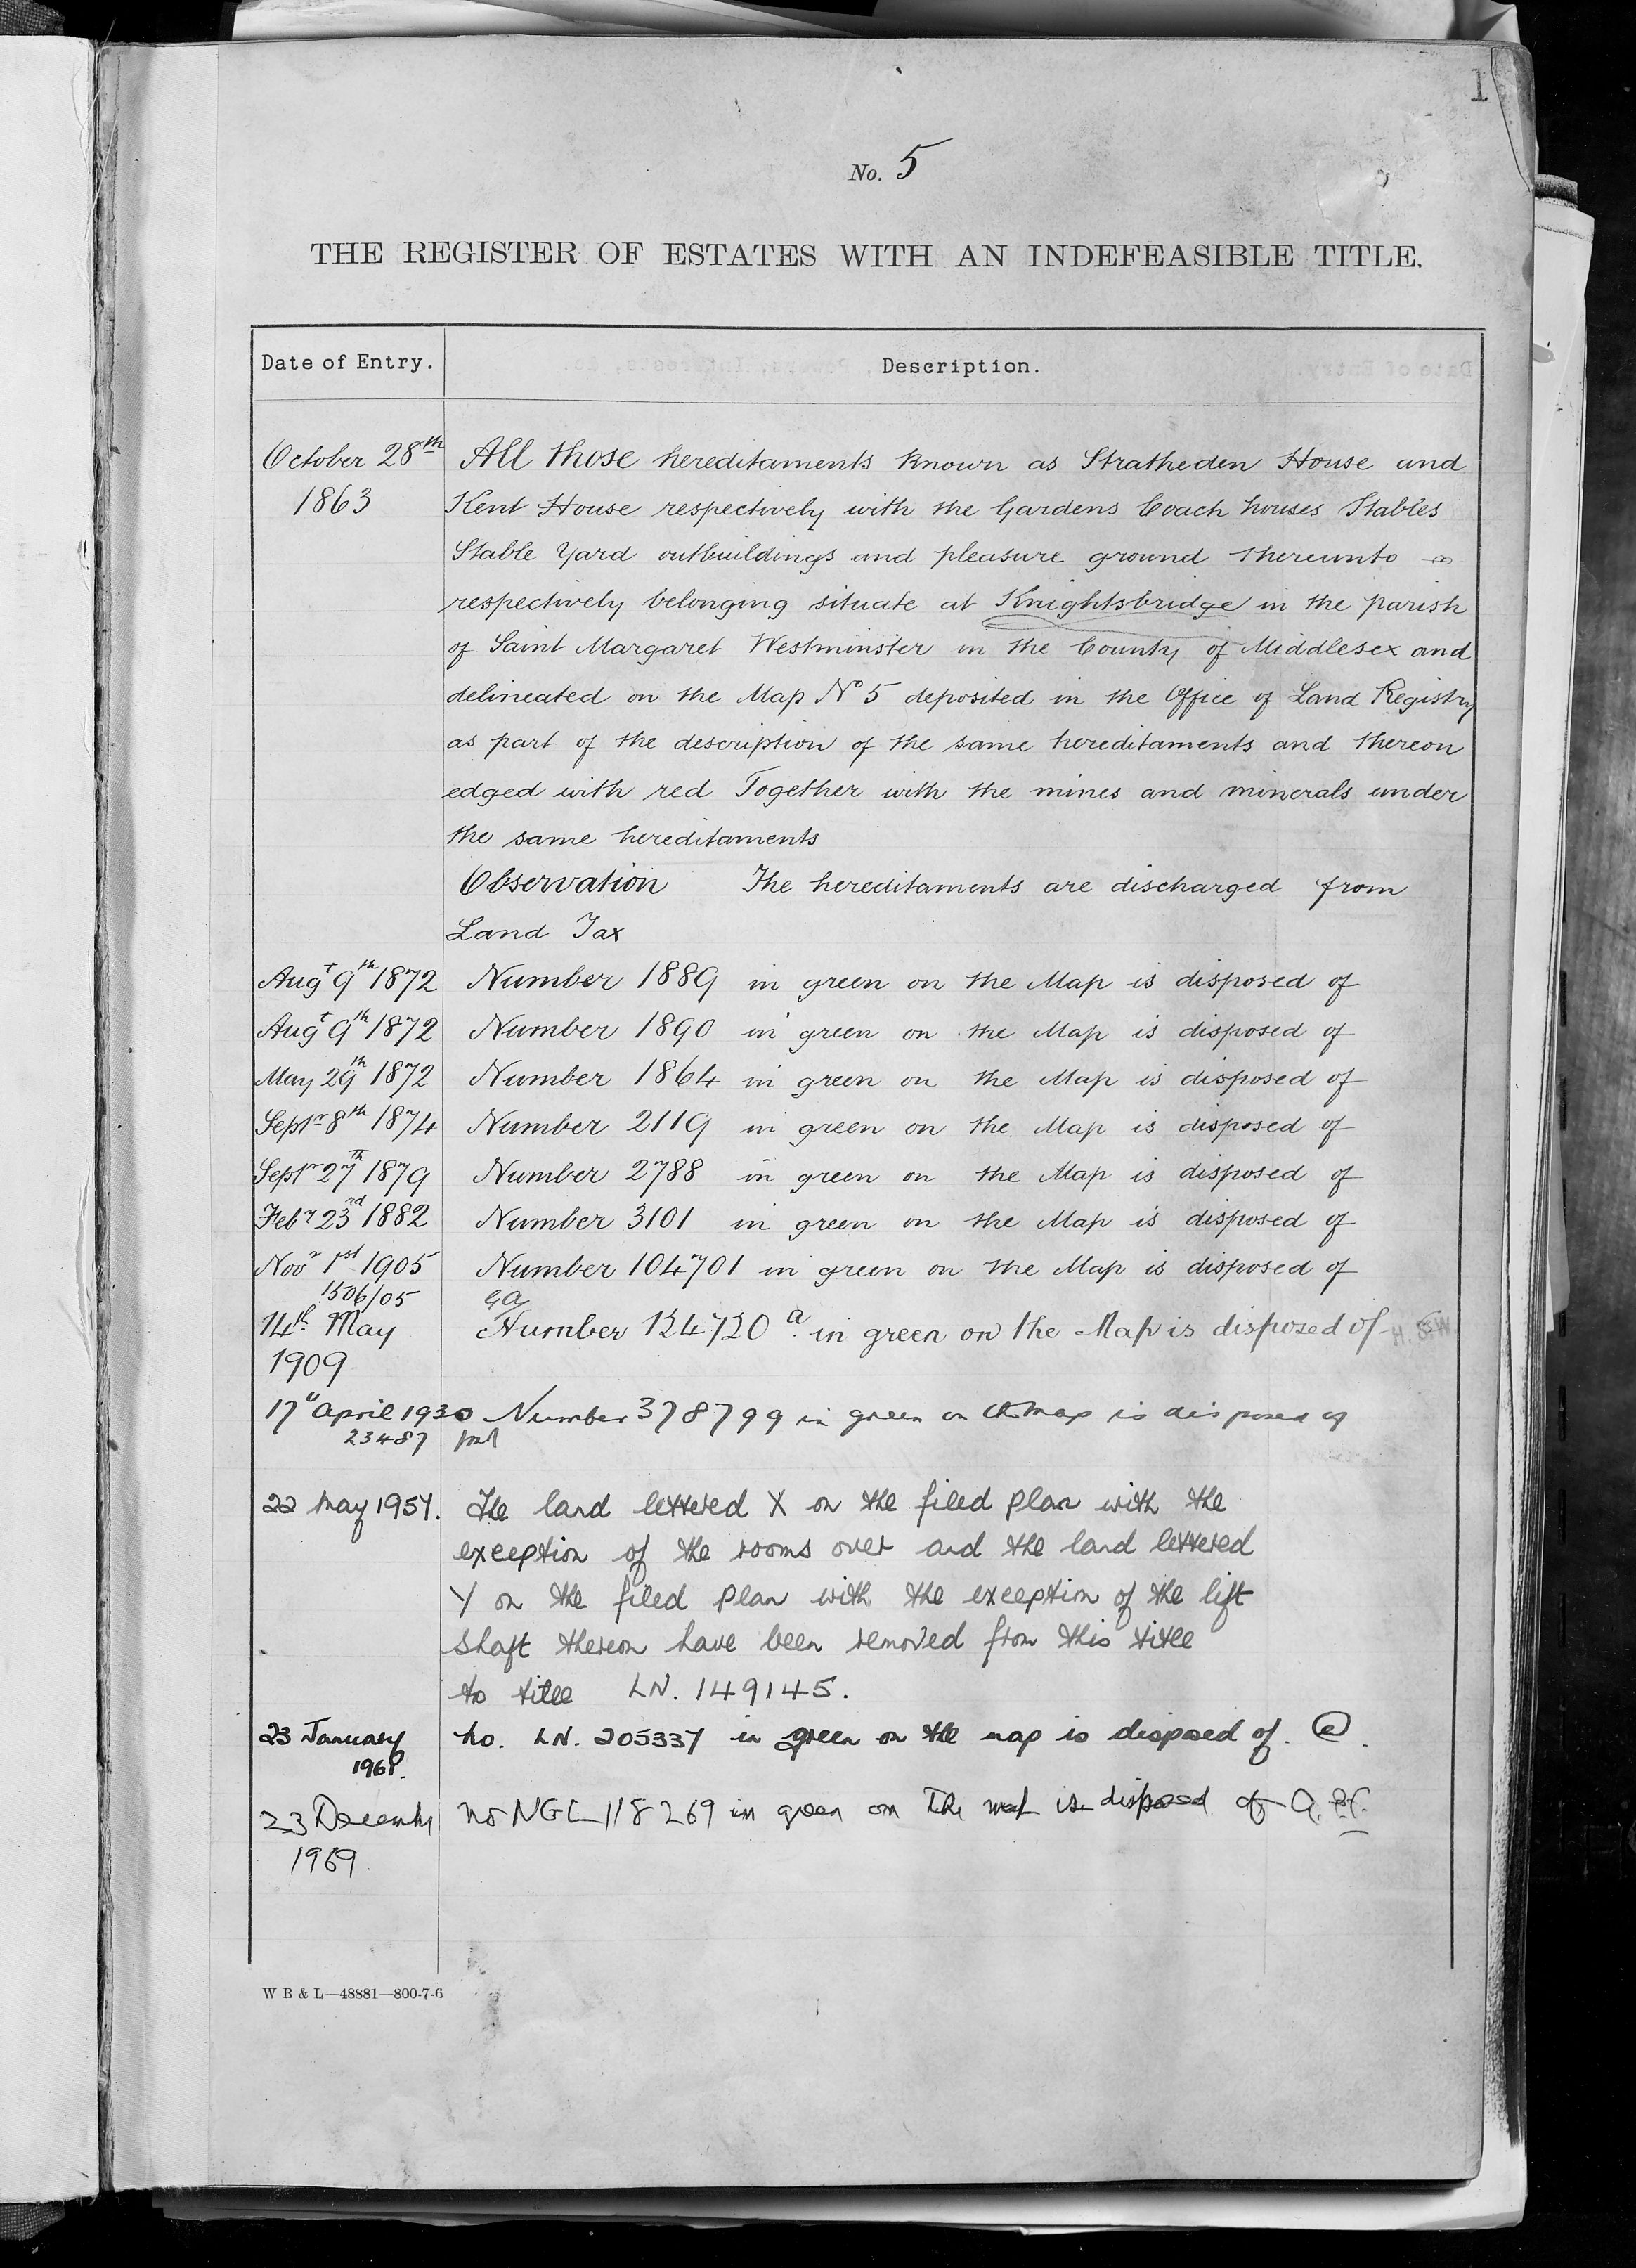 1
No. 5
THE REGISTER OF ESTATES WITH AN INDEFEASIBLE TITLE.
Date of Entry. Description.
October 28th All those hereditaments known as Stratheden House and
1863 Kent House respectively with the Gardens Coach houses Stables
Stable Yard outbuildings and pleasure ground thereunto
respectively belonging situate at Knightsbridge in the parish
of Saint Margaret Westminster in the County of Middlesex and
delineated on the Map No 5 deposited in the Office of Land Registry
as part of the description of the same hereditaments and thereon
edged with red Together with the mines and minerals under
the same hereditaments
Observation The hereditaments are discharged from
Land Tax
Augt 9th 1872 Number 1889 in green on the Map is disposed of
Augt 9th 1872 Number 1890 in green on the Map is disposed of
May 29th 1872 Number 1864 in green on the Map is disposed of
Septr 8th 1874 Number 2119 in green on the Map is disposed of
Septr 27th 1879 Number 2788 in green on the Map is disposed of
Feby 23rd 1882 Number 3101 in green on the Map is disposed of
Novr 1st 1905 Number 104701 in green on the Map is disposed of
1506/05
14th May Number 124720 a in green on the Map is disposed of
1909
17th April 1930 Number 378799 in green on the map is disposed of
23487
22 May 1957. The land lettered X on the filed plan with the
exception of the rooms over and the land lettered
Y on the filed plan with the exception of the lift
shaft thereon have been removed from this title
to title LN. 149145.
23 January No. LN. 205337 in green on the map is disposed of.
1968.
23 December No NGL 118269 in green on the map is disposed of
1969
W B & L—48881—800-7-6